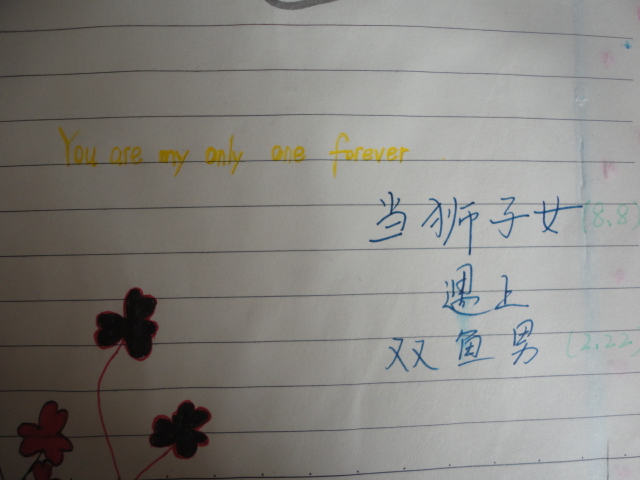 You are my only one forever
当狮子女 (8.8)
遇上
双鱼男 (2.22)